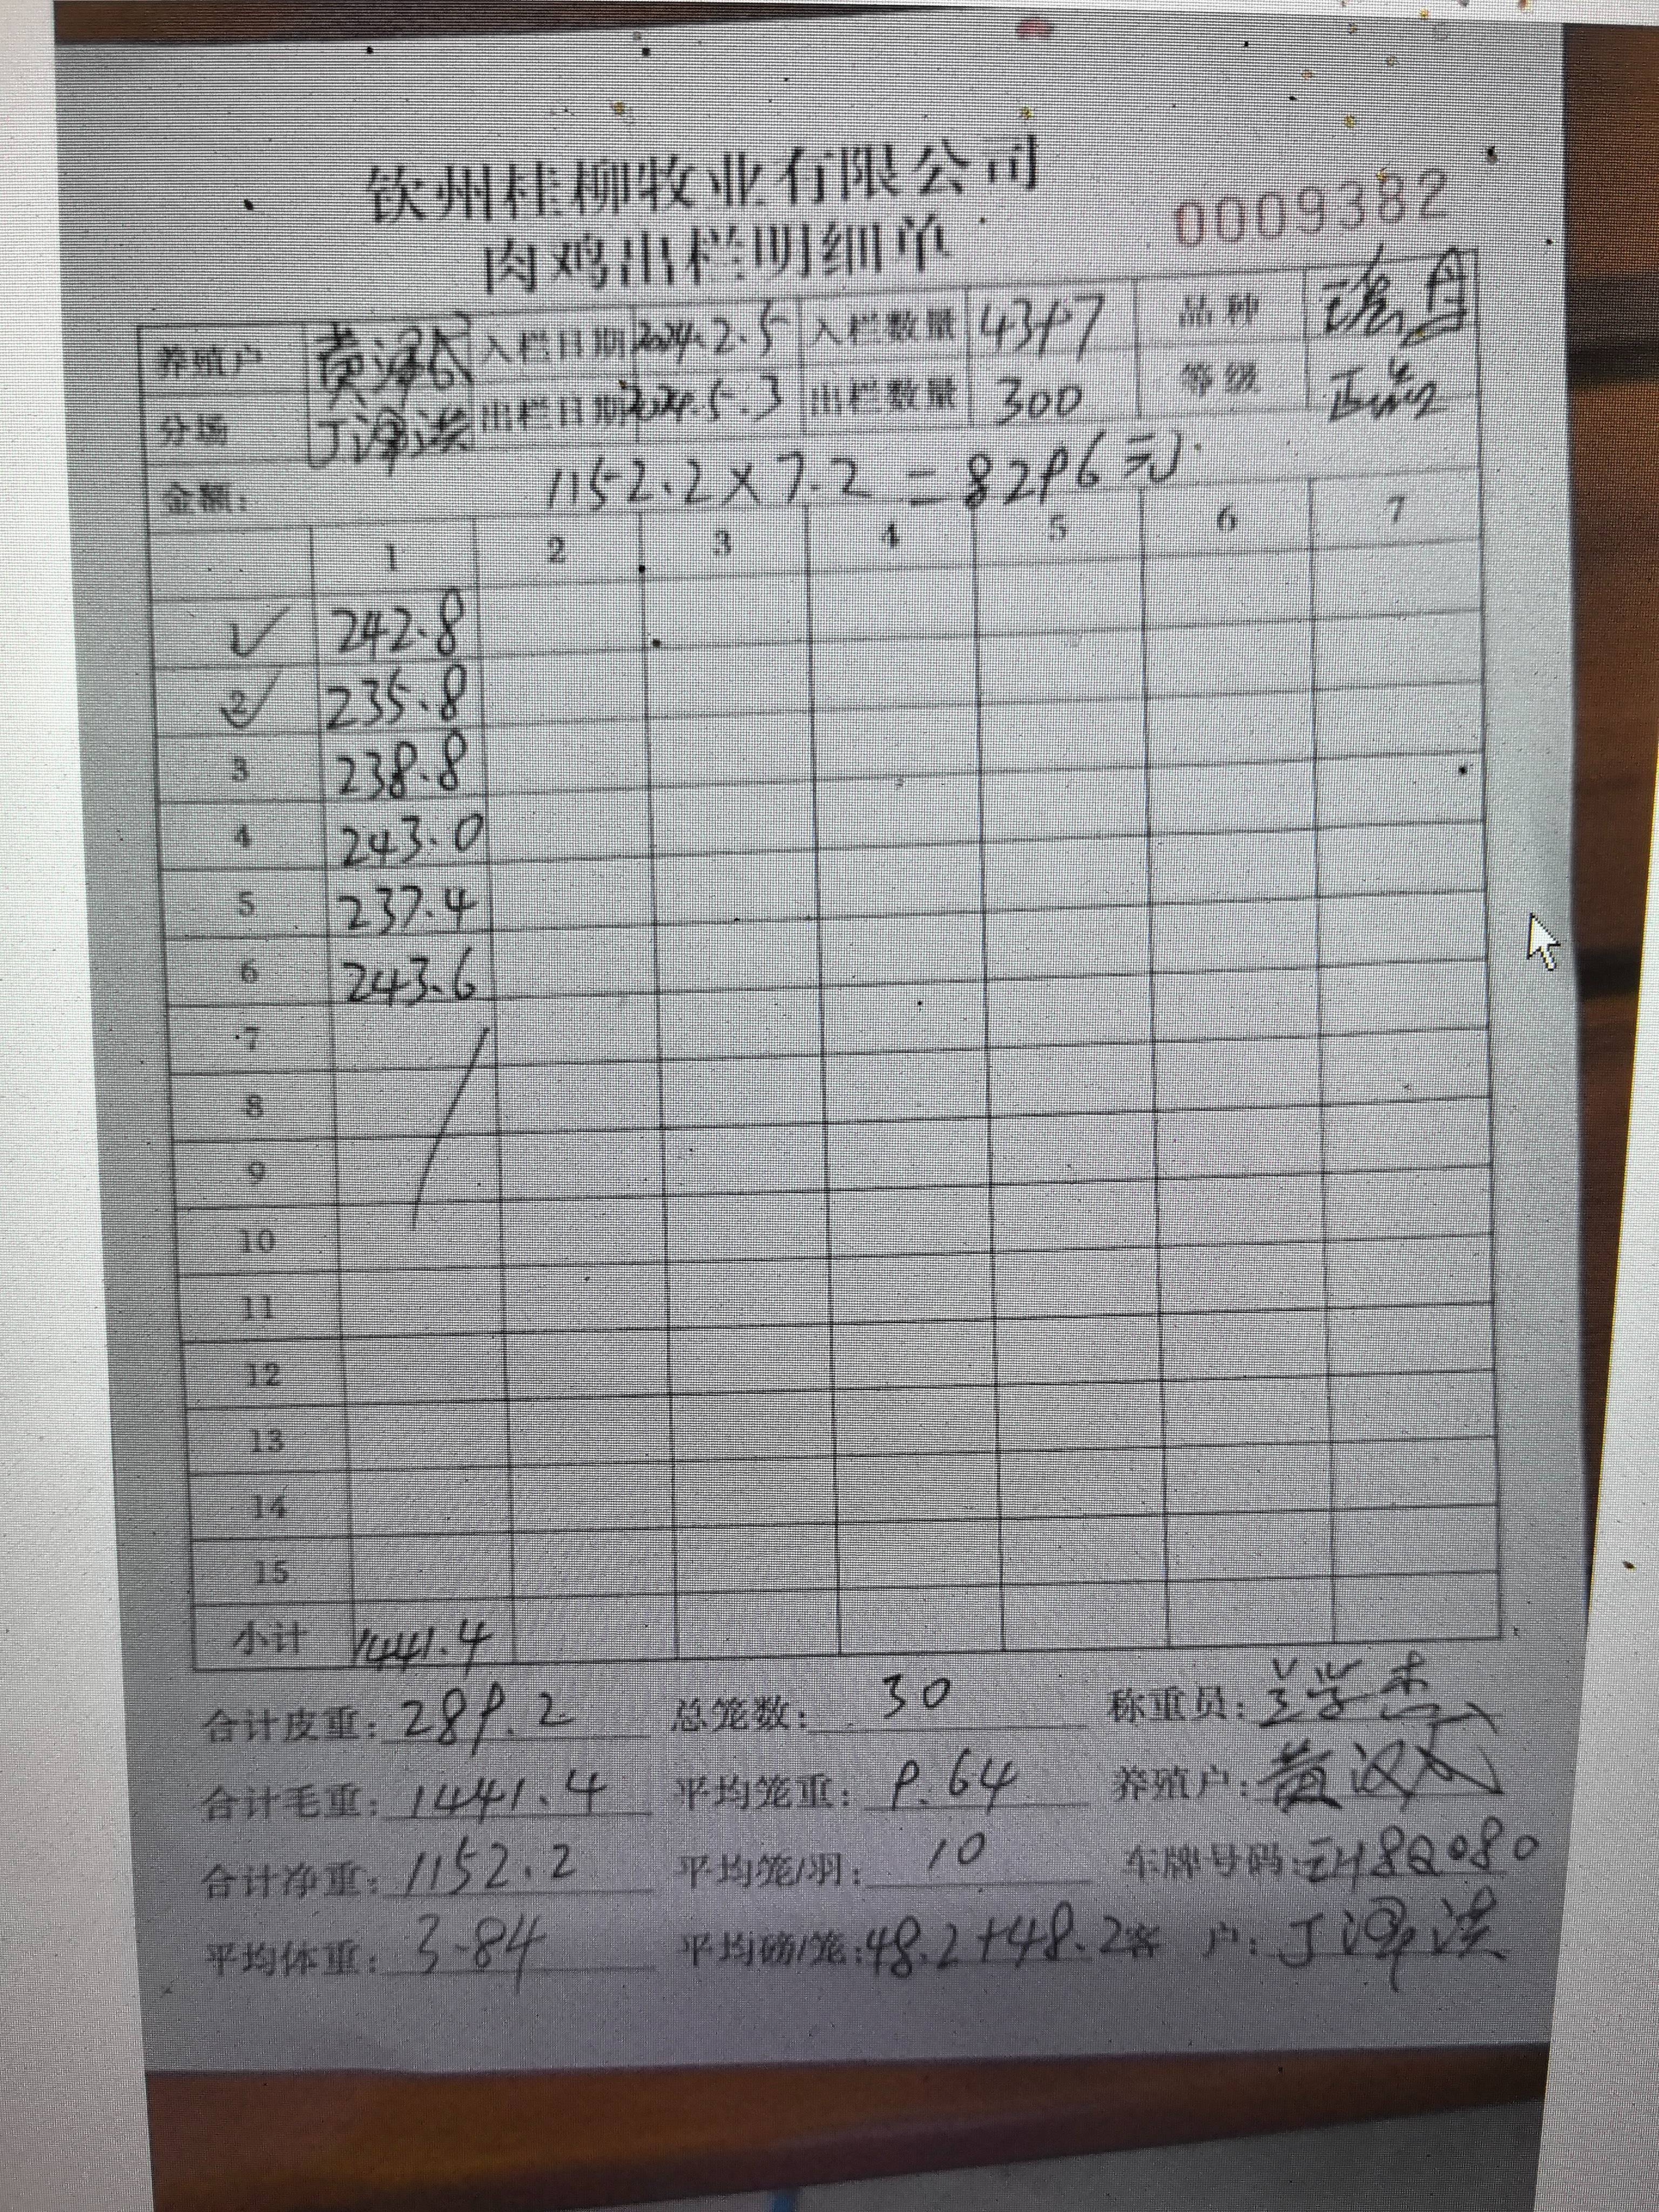 钦州桂柳牧业有限公司
肉鸡出栏明细单
0009382
养殖户 黄 入栏日期 2024.2.5 入栏数量 4397 品种
分场 丁泽洪 出栏日期 2024.5.3 出栏数量 300 等级 正常
金额: 1152.2×7.2=8296元
1 2 3 4 5 6 7
1 242.8
2 235.8
3 238.8
4 243.0
5 237.4
6 243.6
7
8
9
10
11
12
13
14
15
小计 1441.4
合计皮重: 289.2 总笼数: 30 称重员:
合计毛重: 1441.4 平均笼重: 9.64 养殖户: 黄汉
合计净重: 1152.2 平均笼/羽: 10 车牌号码: 云H8Q080
平均体重: 3.84 平均磅/笼: 48.2+48.2 客户: 丁泽洪